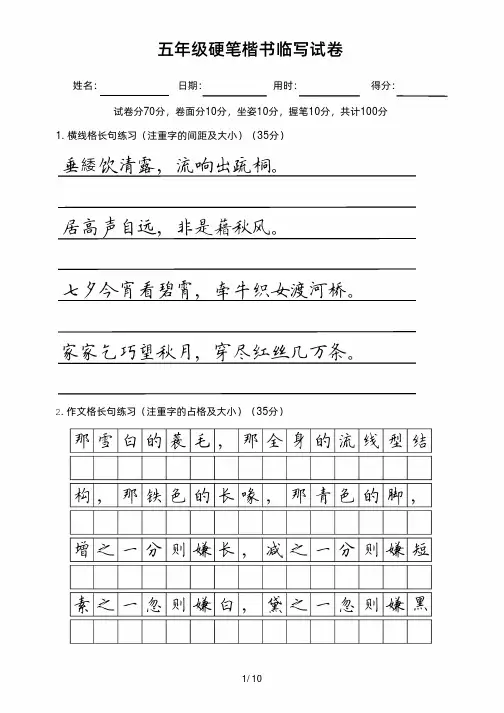 五年级硬笔楷书临写试卷
姓名： 日期： 用时： 得分：
试卷分70分，卷面分10分，坐姿10分，握笔10分，共计100分
1. 横线格长句练习（注重字的间距及大小）（35分）
垂緌饮清露，流响出疏桐。
居高声自远，非是藉秋风。
七夕今宵看碧霄，牵牛织女渡河桥。
家家乞巧望秋月，穿尽红丝几万条。
2. 作文格长句练习（注重字的占格及大小）（35分）
那雪白的蓑毛，那全身的流线型结
构，那铁色的长喙，那青色的脚，
增之一分则嫌长，减之一分则嫌短
素之一忽则嫌白，黛之一忽则嫌黑
1/ 10